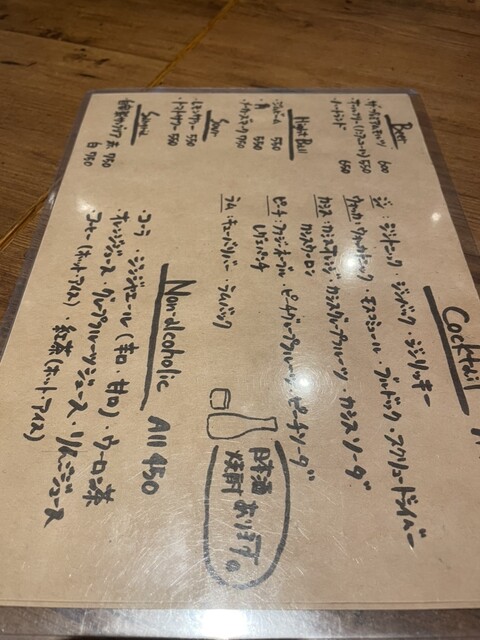 Beer
ザ・プレミアムモルツ 600
ノートランド 650
High Ball
ジムビーム 550
角 550
メーカーズマーク 750
Sour
レモンサワー 550
トマトサワー 550
Sangria
赤 750
白 750
Cocktail
ジン：ジントニック・ジンバック・ジンリッキー
ウォッカ：ウォッカトニック・モスコミュール・ブルドッグ・スクリュードライバー
カシス：カシスオレンジ・カシスグレープフルーツ・カシスソーダ
カシスウーロン
ピーチ：ファジーネーブル・ピーチグレープフルーツ・ピーチソーダ
レゲエパンチ
ラム：キューバリバー・ラムバック
Non-alcoholic All 450
・コーラ・ジンジャエール（辛口・甘口）・ウーロン茶
・オレンジジュース・グレープフルーツジュース・りんごジュース
・コーヒー（ホット・アイス）・紅茶（ホット・アイス）
日本酒
焼酎 あります。